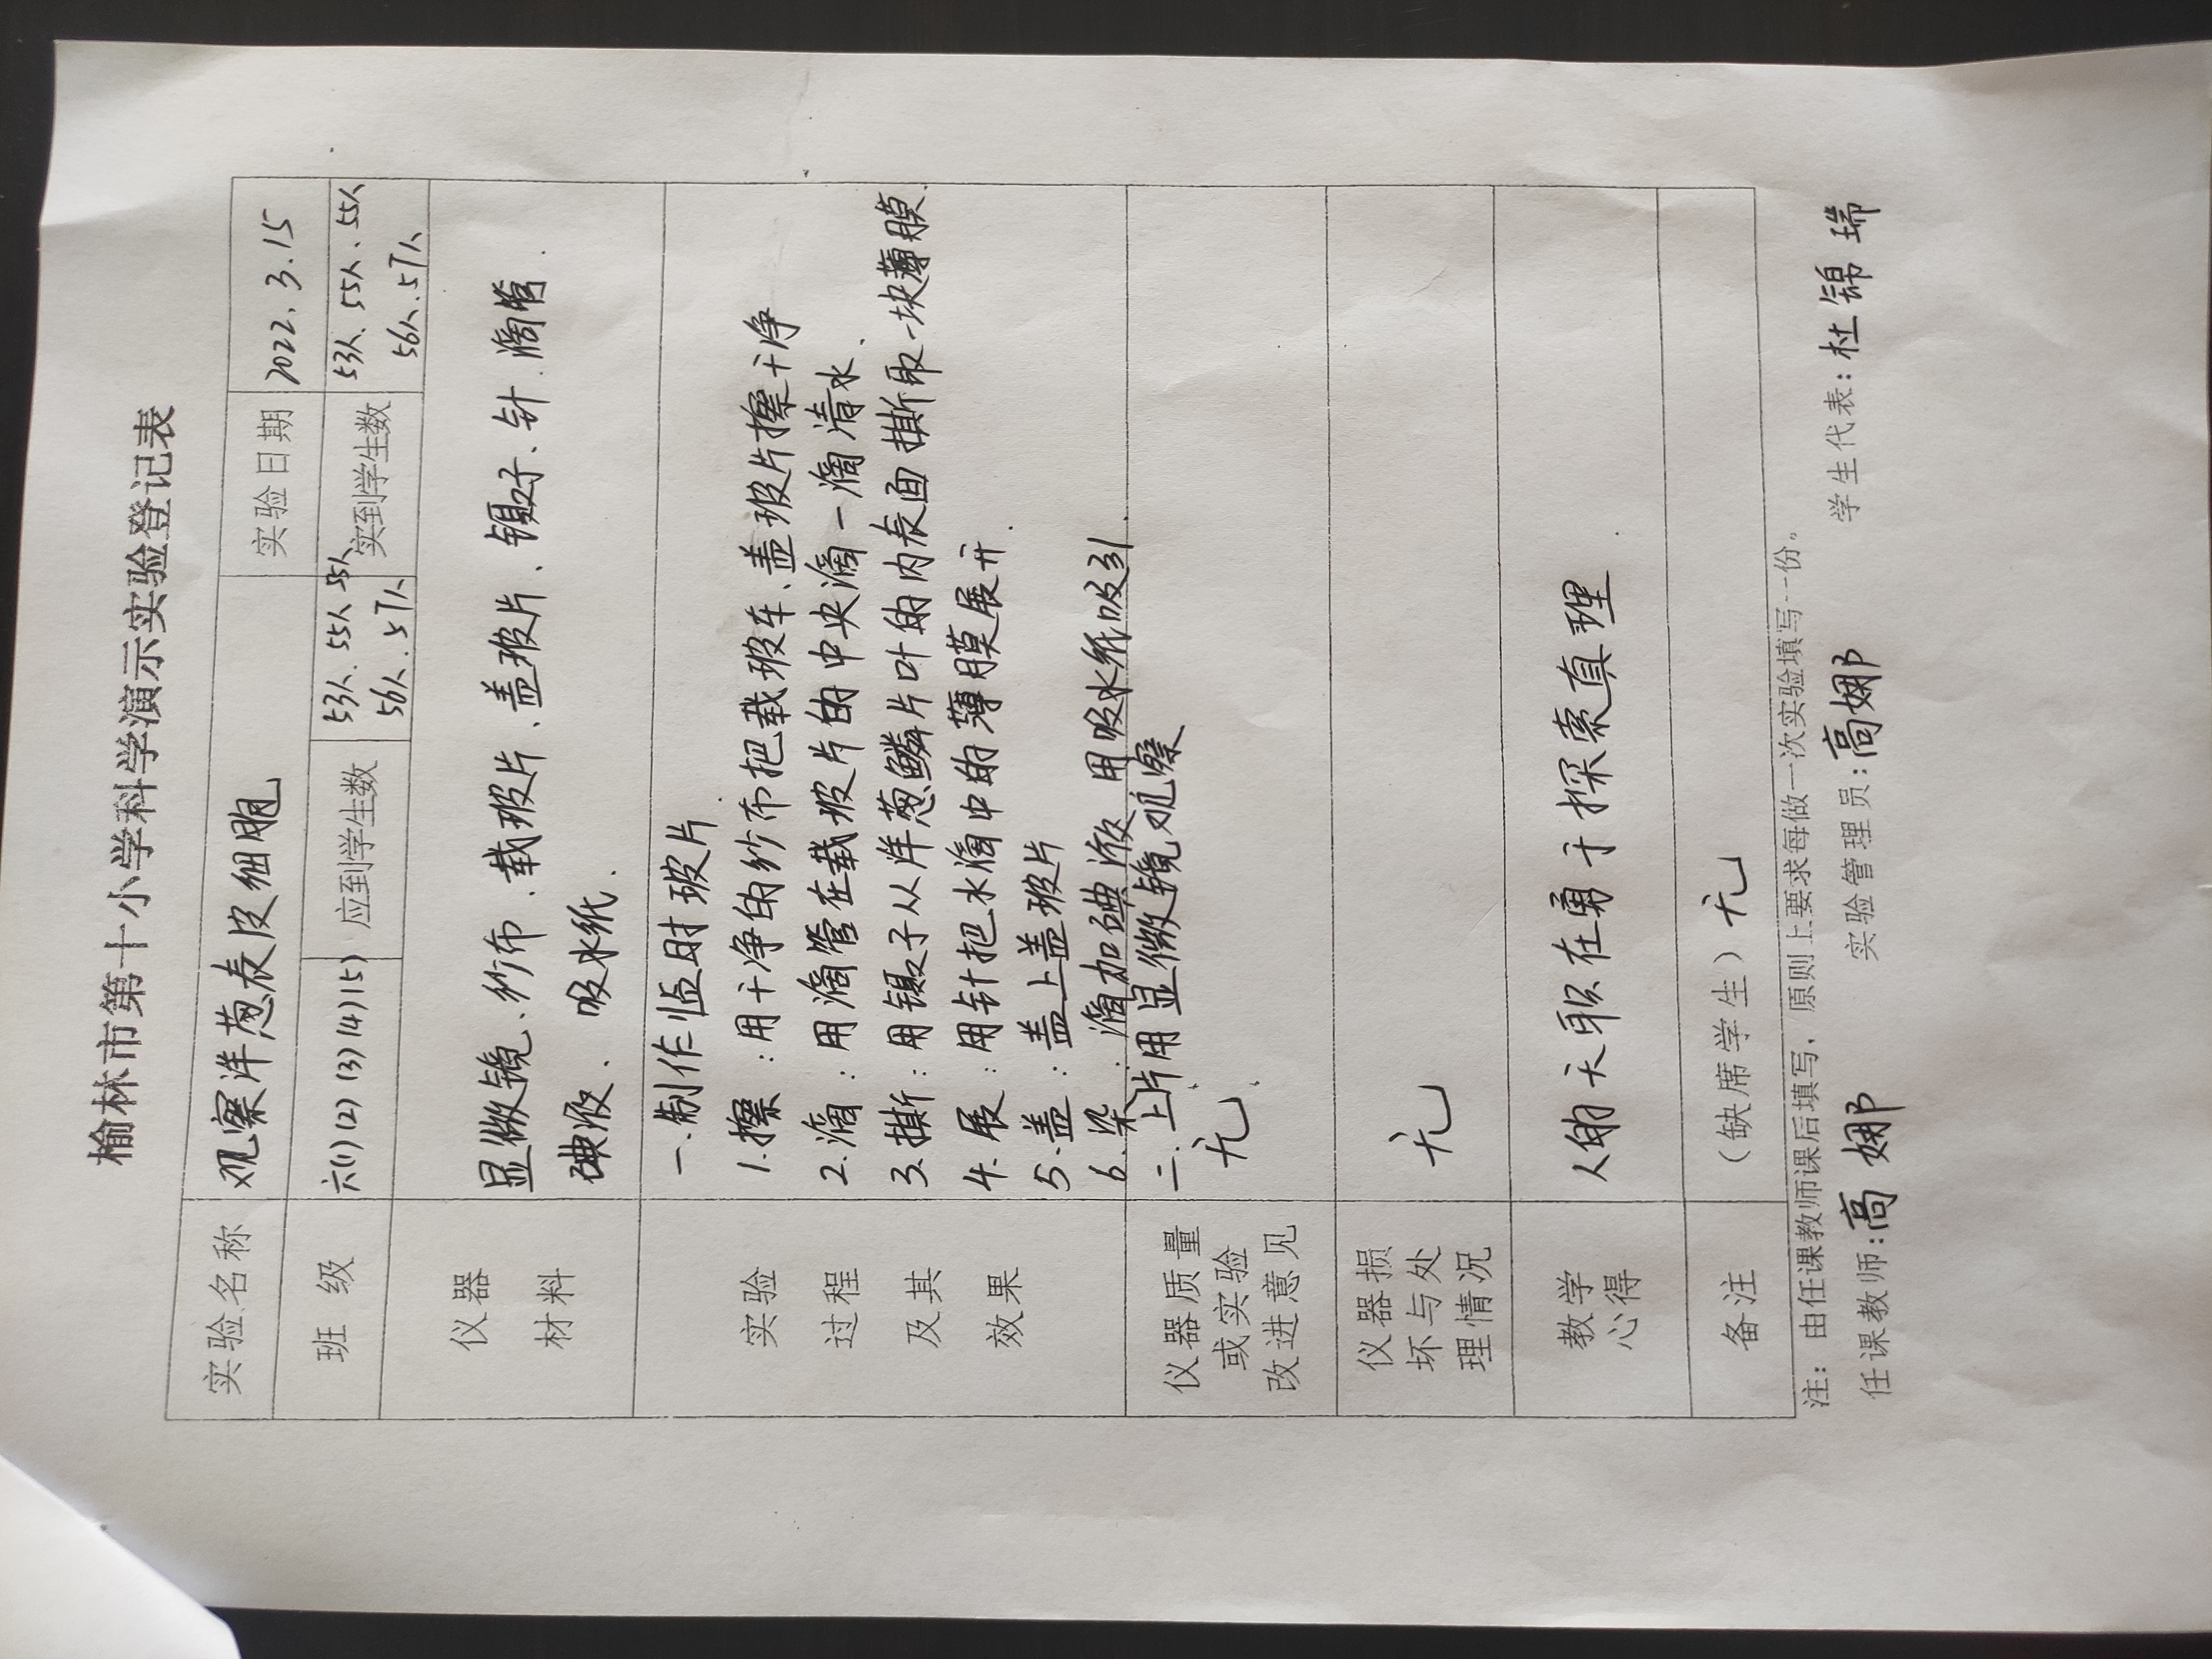 榆林市第十小学科学演示实验登记表
实验名称 观察洋葱表皮细胞 实验日期 2022.3.15
班 级 六(1)(2)(3)(4)(5) 应到学生数 53人、55人、55人 56人、57人 实到学生数 53人、55人、55人 56人、57人
仪器 显微镜、纱布、载玻片、盖玻片、镊子、针、滴管
材料 碘液、吸水纸.
实验
过程
及其
效果
一.制作临时玻片
1.擦:用干净的纱布把载玻车、盖玻片擦干净
2.滴:用滴管在载玻片的中央滴一滴清水.
3.撕:用镊子从洋葱鳞片叶的内表面撕取一块薄膜.
4.展:用针把水滴中的薄膜展开.
5.盖:盖上盖玻片
6.染:滴加碘液用吸水纸吸引.
二.上片用显微镜观察
仪器质量
或实验
改进意见
无
仪器损
坏与处
理情况
无
教学
心得
人的天职在勇于探索真理
备注 (缺席学生) 无
注: 由任课教师课后填写, 原则上要求每做一次实验填写一份。
任课教师:高娜 实验管理员:高娜 学生代表:杜锦瑞